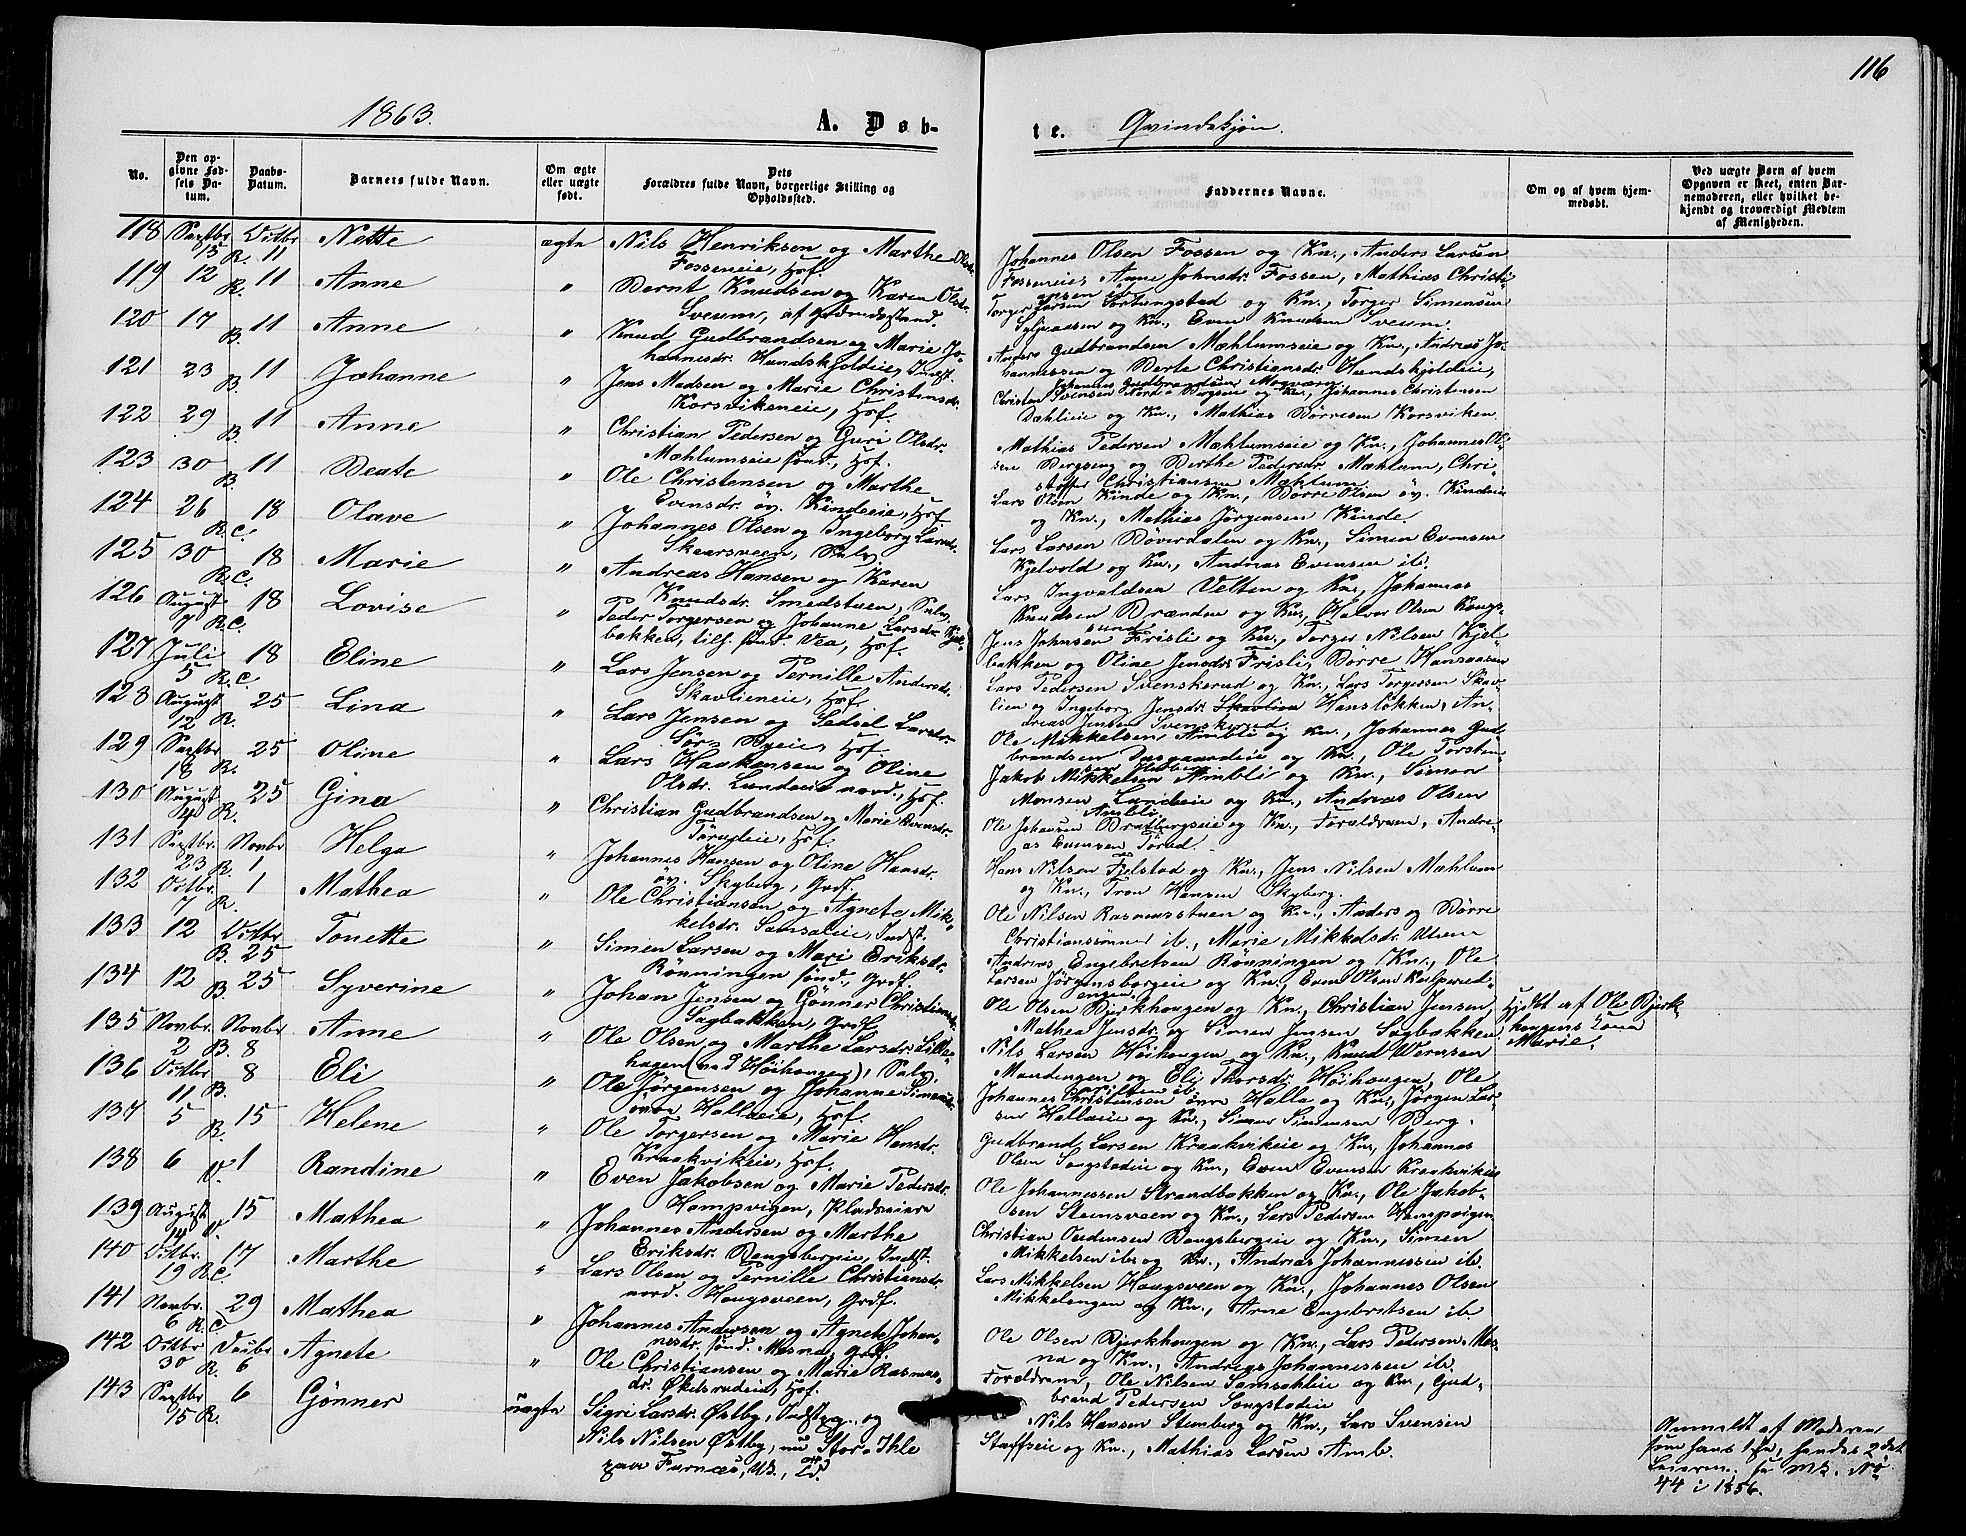 116
1863.
A. Døb-
te.
Qvindekjøn.
No.
Den op-
givne Fød-
sels Da-
tum.
Daabs-
Datum.
Barnets fulde Navn.
Om ægte
eller uægte
født.
Dets
Forældres fulde Navn, borgerlige Stilling og
Opholdssted.
Faddernes Navne.
Om og af hvem hjem-
medøbt.
Ved uægte Barn af hvem
Opgaven er skeet, enten Bar-
nemoderen, eller hvilket be-
kjendt og troværdigt Medlem
af Menigheden.
118 Septbr 13 R. Octbr 11 Nette ægte Nils Henriksen og Marthe Olsdr.
Fosseneie, Hsf.
Johannes Olsen Fossen og Kn., Anders Larsen
Fosseneie, Anne Johnsdr. Fossen, Mathias Christi-
ansen ib.
119 12 R. 11 Anne " Bernt Knudsen og Karen Olsdr.
Sveum, af Gdmdsstand.
Torger Larsen Torbungstad og Kn., Torger Simensen
og Kn., Even Knudsen Sveum.
120 17 B. 11 Anne " Knud Gudbrandsen og Marie Jo-
hannesdr. Hundskjoldeie, Indst.
Anders Gudbrandsen Mæhlumseie og Kn., Andreas Jo-
hannessen og Berte Christiansdr. Hundskjoldeie,
Johannes Gudbrandsen
121 23 B. 11 Johanne " Jens Madsen og Marie Christensdr.
Korsvikeneie, Hsf.
Christen Svensen Nord-Bergsen og Kn., Johannes Christensen
Dahlieie og Kn., Mathias Børresen Korsviken.
122 29 B. 11 Anne " Christian Pedersen og Guri Olsdr.
Mæhlumseie sønd., Hsf.
Mathias Pedersen Mæhlumseie og Kn., Johannes Ol-
sen Bergseng og Berthe Pedersdr. Mæhlum, Chri-
stoffer Christiansen Mæhlum.
123 30 B. 11 Beate " Ole Christensen og Marthe
Evensdr. øv. Kindseie, Hsf.
Lars Olsen Kinde og Kn., Børre Olsen øv. Kindeie
og Kn., Mathias Jørgensen Kinde.
124 26 R.C. 18 Olave " Johannes Olsen og Ingeborg Larsdr.
Skaarsveen, Selv.
Lars Larsen Bøverdalen og Kn., Simen Evensen
Kjelvold og Kn., Andreas Evensen ib.
125 30 R.C. 18 Marie " Andreas Hansen og Karen
Knudsdr. Smedstuen, Selv.
Lars Ingvaldsen Velten og Kn., Johannes
Knudsen Brænden og Kn., Halvor Olsen Kongs-
sund.
126 August R.C. 18 Lovise " Peder Torgersen og Johanne Larsdr. Kjel-
bakken, tilf. sønd. Vea, Hsf.
Jens Johnsen Frisli og Kn., Torger Nilsen Kjel-
bakken og Oline Jensdr. Frisli, Børre Hansaasen
127 Juli 5 R.C. 18 Eline " Lars Jensen og Pernille Andersdr.
Skavlieneie, Hsf.
Lars Pedersen Svenskerud og Kn., Lars Torgersen Skav-
lien og Ingeborg Jensdr. Hansløkken, An-
dreas Jensen Svenskerud.
128 August 12 R. 25 Lina " Lars Jensen og Sedsel Larsdr.
Sør-Ryeie, Hsf.
Ole Mikkelsen Amblie og Kn., Johannes Gud-
brandsen og Kn., Ole Torsten-
sen
129 Septbr 18 R. 25 Oline " Lars Haakensen og Oline
Olsdr. Lundeie nord., Hsf.
Jakob Mikkelsen Amblie og Kn., Simen
Monsen Lundeie og Kn., Andreas Olsen
Amblie.
130 August R. 25 Gina " Christian Gudbrandsen og Marie Evensdr.
Tørudeie, Hsf.
Ole Johansen Bratbergseie og Kn., Forældrene, Andre-
as Evensen Tørud.
131 Septbr. 23 R. Novbr 1 Helga " Johannes Hansen og Oline Hansdr.
øv. Skyberg, Grdf.
Hans Nilsen Fjelstad og Kn., Jens Nilsen Mahlum
og Kn., Tron Hansen Skyberg.
132 Octbr. 7 R. 1 Mathea " Ole Christiansen og Agnete Mik-
kelsdr. Samsaleie, Indst.
Ole Nilsen Rasmusstuen og Kn., Anders og Børre
Christianssønner ib., Marie Mikkelsdr. Ulsen
133 12 B. Octbr 25 Tonette " Simen Larsen og Mari Eriksdr.
Rønningen sønd., Grdf.
Andreas Engebretsen Rønningen og Kn., Ole
Larsen Jørgensborgeie og Kn., Even Olsen Kulperud-
engen.
134 12 B. 25 Syverine " Johan Jensen og Gønner Christiansdr.
Sagbakken, Grdf.
Ole Olsen Bjerkhaugen og Kn., Christian Jensen,
Mathea Jensdr. og Simen Jensen Sagbakken
Hjdt af Ole Bjerk-
haugens Kone
Marie.
135 Novbr. 2 B. Novbr 8 Anne " Ole Olsen og Marthe Larsdr. Lille-
hagen (ved Høihaugen), Selv.
Nils Larsen Høihaugen og Kn., Knud Wernssen
Mandingen og Eli Thorsdr. Høihaugen, Ole
136 Octbr 11 B. 8 Eli " Ole Jørgensen og Johanne Simensdr.
øvre Hallaeie, Hsf.
Johannes Christensen øvre Halla og Kn., Jørgen Lar-
sen Hallaeie og Kn., Simen Simensen Berg.
137 5 B. 15 Helene " Ole Torgersen og Marie Hansdr.
Kraakvikeie, Hsf.
Gudbrand Larsen Kraakvikeie og Kn., Johannes
Olsen Songstadeie og Kn., Even Evensen Kraakvikeie
138 6 V. 1 Randine " Even Jakobsen og Marie Pedersdr.
Hampvigen, Pladseiere
Ole Johannessen Strandbakken og Kn., Ole Jakob-
sen Stemsveen og Kn., Lars Pedersen Hampvigen
139 August 14 V. 15 Mathea " Johannes Andersen og Marthe
Eriksdr. Bongsbergeie, Indst.
Christian Bongsbergeie og Kn., Simen
Mikkelsen ib. og Kn., Andreas Johannessen ib.
140 Octbr. 19 R.C. 17 Marthe " Lars Olsen og Pernille Christiansdr.
nord. Haugsveen, Grdf.
Lars Mikkelsen Haugsveen og Kn., Johannes Olsen
Mikkelengen og Kn., Arne Engebretsen ib.
141 Novbr. 6 R.C. 29 Mathea " Johannes Andersen og Agnete Johan-
nesdr. sønd. Mesna, Grdf.
Ole Olsen Bjerkhaugen og Kn., Lars Pedersen Mes-
na og Kn., Andreas Johannessen ib.
142 Octbr 30 R. Decbr 6 Agnete " Ole Christiansen og Marie Rasmus-
dr. Økelsrudeie, Hsf.
Forældrene, Ole Nilsen Samsahleie og Kn., Gud-
brand Pedersen Songstadeie
143 Septbr 15 R. 6 Gønner uægte Sigri Larsdr. Østby, Indstpg., og
Nils Nilsen Østby, nu Stor-Ihle
paa Furnæs, Uk.,
Nils Hansen Stemberg og Kn., Lars Svensen
Staffseie og Kn., Mathias Larsen Amb.
Anmeldt af Moderen
som hans 1ste, hendes 2det
Leierm., 44 i 1856.